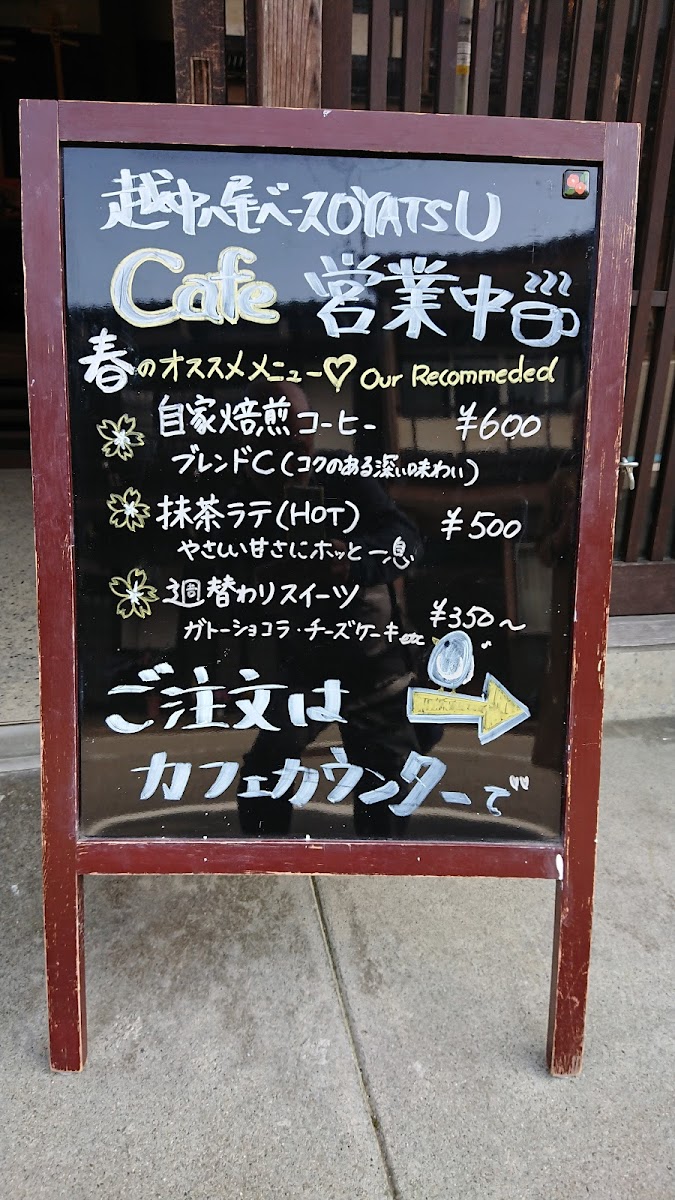 越中八尾ベースOYATSU
Cafe 営業中
春のオススメメニュー♡ Our Recommeded
自家焙煎コーヒー ¥600
ブレンドC(コクのある深い味わい)
抹茶ラテ(HOT) ¥500
やさしい甘さにホッと一息
週替わりスイーツ
¥350〜
ガトーショコラ・チーズケーキetc
ご注文は
カフェカウンターで